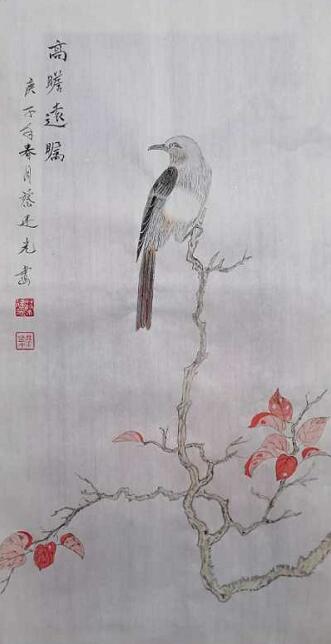 高瞻遠瞩
庚子年春月蔡廷光画